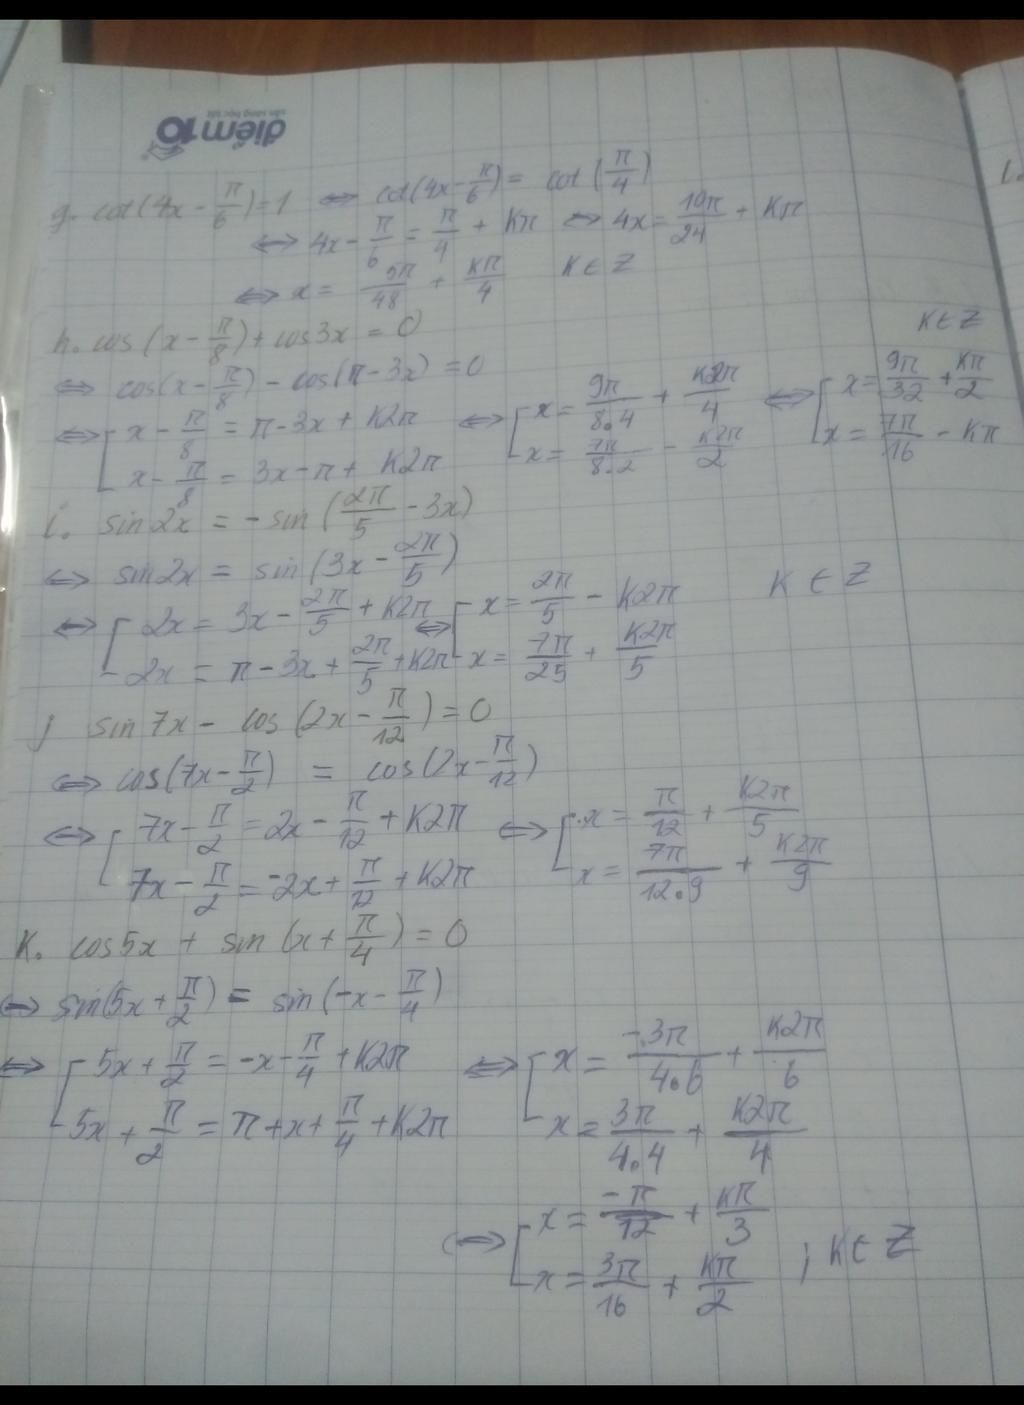 điểm10
sẵn sàng học tốt
g. cot(4x - π/6) = 1 ⇔ cot(4x - π/6) = cot(π/4)
⇔ 4x - π/6 = π/4 + Kπ ⇔ 4x = 10π/24 + Kπ
⇔ x = 5π/48 + Kπ/4 K ∈ Z
h. cos(x - π/8) + cos3x = 0 K ∈ Z
⇔ cos(x - π/8) - cos(π - 3x) = 0
⇔ [ x - π/8 = π - 3x + K2π ⇔ [ x = 9π/8.4 + K2π/4 ⇔ [ x = 9π/32 + Kπ/2
x - π/8 = 3x - π + K2π x = 7π/8.2 - K2π/2 x = 7π/16 - Kπ
i. sin2x = -sin(2π/5 - 3x)
⇔ sin2x = sin(3x - 2π/5) K ∈ Z
⇔ [ 2x = 3x - 2π/5 + K2π ⇔ [ x = 2π/5 - K2π
2x = π - 3x + 2π/5 + K2π x = 7π/25 + K2π/5
j sin7x - cos(2x - π/12) = 0
⇔ cos(7x - π/2) = cos(2x - π/12)
⇔ [ 7x - π/2 = 2x - π/12 + K2π ⇔ [ x = π/12 + K2π/5
7x - π/2 = -2x + π/12 + K2π x = 7π/12.9 + K2π/9
K. cos5x + sin(x + π/4) = 0
⇔ sin(5x + π/2) = sin(-x - π/4)
⇔ [ 5x + π/2 = -x - π/4 + K2π ⇔ [ x = -3π/4.6 + K2π/6
5x + π/2 = π + x + π/4 + K2π x = 3π/4.4 + K2π/4
⇔ [ x = -π/12 + Kπ/3 ; K ∈ Z
x = 3π/16 + Kπ/2